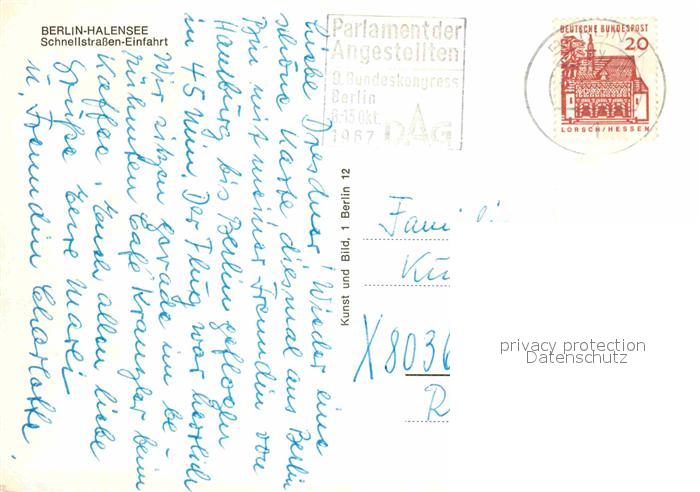 BERLIN-HALENSEE
Schnellstraßen-Einfahrt
Liebe Dresdner! Wieder eine
schöne Karte diesmal aus Berlin
Bin mit meiner Freundin von
Hamburg bis Berlin geflogen
in 45 Min. Der Flug war herrlich
Wir sitzen gerade im be-
rühmten Café Kranzler beim
Kaffee. Euch allen liebe
Grüße Eure Marei
u. Freundin Charlotte.
Kunst und Bild, 1 Berlin 12
Parlament der
Angestellten
9. Bundeskongress
Berlin
8-13 Okt.
1967 DAG
DEUTSCHE BUNDESPOST
20
LORSCH/HESSEN
BERLIN
Fami
X 8036
privacy protection
Datenschutz